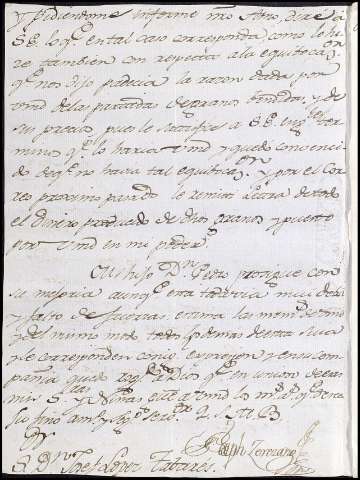 y pidiendome informe mio sobre, dire a
S.E. lo q.e en tal caso corresponda como lo hi-
re tambien con respecto a la equibocaz.on
q.e nos dijo padecia la razon dada por
vmd de las partidas de granos bendidas, y de
sus precios, pues le satisfice a S.E. en los ter-
minos q.e lo haria vmd y quedo convenci-
do de q.e no havia tal equibocaz.on y por el Cor-
reo proximo pasado le remiti Letra de todo
el Dinero prozedido de dhos granos y puesto
por vmd en mi poder.
Mi hijo D.n Pedro prosigue con
su mejoria aunq.e esta todavia muy devil
y falto de fuerzas estima las mem.s de vmd
y del mismo modo todos los demas de esta su casa
y le corresponden con expresion y en su com-
pañia quedo rog.do a Dios q.e en union de
mis S.ras gue a vmd los m.s a.s q.e desea
su fino am.o y seg.o serv.or Q. S. M. B.
Joseph Lorenzana
S. D.n Josef Lopez Tabares.